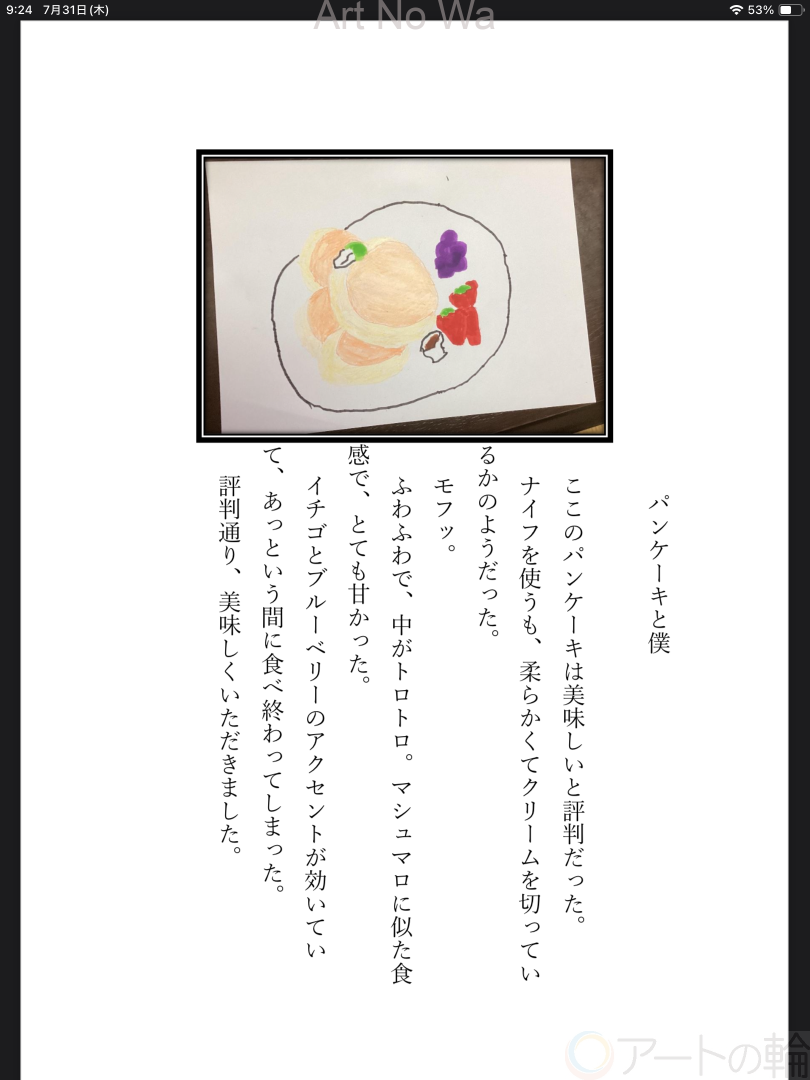 9:24 7月31日(木)
53%
Art No Wa
パンケーキと僕
ここのパンケーキは美味しいと評判だった。
ナイフを使うも、柔らかくてクリームを切ってい
るかのようだった。
モフッ。
ふわふわで、中がトロトロ。マシュマロに似た食
感で、とても甘かった。
イチゴとブルーベリーのアクセントが効いてい
て、あっという間に食べ終わってしまった。
評判通り、美味しくいただきました。
アートの輪